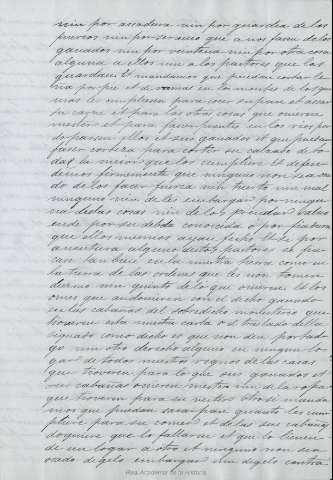 nin por assadura nin por guarda de los
puercos nin por servicio que a nos fasen de los
ganados nin por veintena nin por otra cosa
alguna a ellos nin a los pastores que los
guardaren et mandamos que puedan cortar le
na por pie et de ramas en los montes de los que
mas les cumplieren para coser su pan et assar
su carne et para las otras cosas que ovieren
mester et para faser puentes en los rios por
do passen ellos et sus ganados et que puedan
faser corteza para cortir su calzado de to
da la meior que les cumpliere et defen
demos firmemente que ninguno non sea osa
do de les faser fuerza nin tuerto nin mal
ninguno nin de les embargar por ningu
na destas cosas nin de los prendar salvo
ende por su debda conocida o por fiadura
que ellos mismos ayan fecho Et si por
aventura alguno destos pastores se fin
care tan bien en la nuestra tierra como en
la tierra de las ordenes que les non tomen
diesmo nin quinto de lo que ovieren Et los
omes que andovieren con el dicho ganado
en las cabañas del sobredicho monesterio que
troxieren esta nuestra carta o el traslado della
signado como dicho es que non den portad
go nin otro derecho alguno en ningun lo
gar de todos nuestros regnos de las cosas
que troxeren para lo que sus ganados et
sus cabañas ovieren mester nin de la ropa
que troxeren para su vestir Otrosi manda
mos que puedan sacar pan quanto les cum
pliere para su comer et de las sus cabañas
doquiere que lo fallaren et que lo lieven
de un logar a otro et ninguno non sea
osado de gelo embargar nin de gelo contra
Real Academia de la Historia